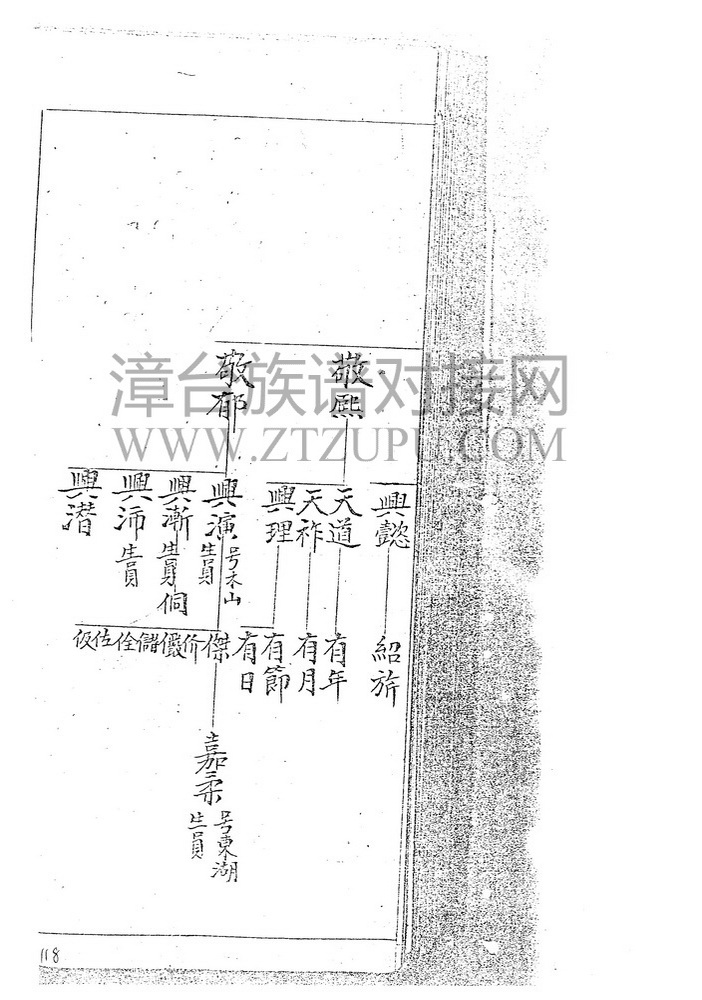 敬熙
敬郁
興懿
天道
天祚
興理
興演 号木山 生員
興漸 生員
興沛 生員
興潛
侗
紹旂
有年
有月
有節
有日
傑
价
儼
儲
佺
佐
仮
嘉柔 号東湖 生員
漳台族谱对接网
WWW.ZTZUPU.COM
118